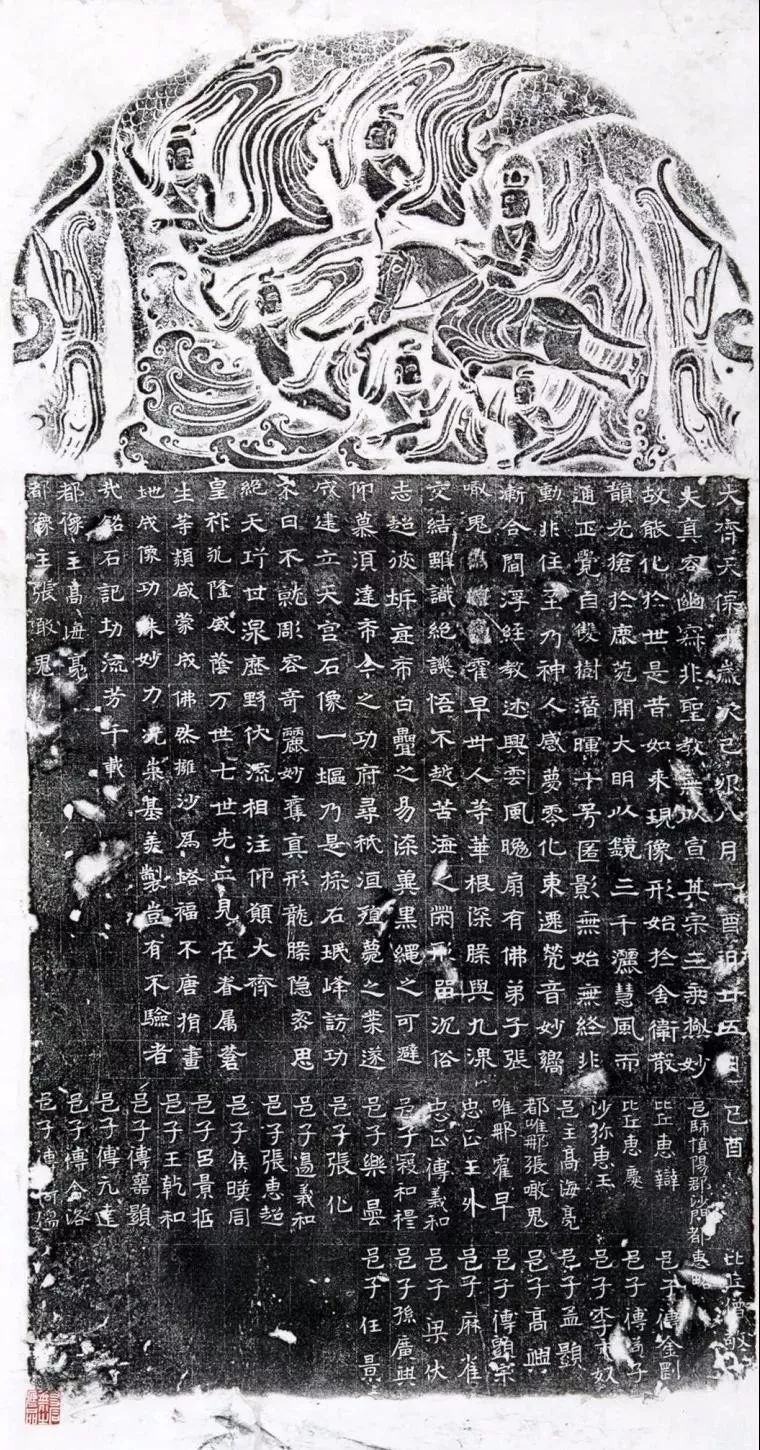 大齊天保十歲次己卯八月乙酉朔廿五日己酉
夫真容幽寂非聖教無以宣其宗三乘微妙
故能化於世是昔如来現像形始於舍衛散
韻光搶於鹿菀開大明以鏡三千灑慧風而
通正覺自雙樹潛暉十号匿影無始無終非
動非住至乃神人感夢零化東遷梵音妙嚮
漸合閻浮經教述興雲風晚扇有佛弟子張
噉鬼霍早卅人等華根深朕與九
交結雖識絶談悟不越苦海之榮形留沉俗
志超彼坼每常白疊之易染冀黑縄之可避
仰慕湏達布金之功府尋祇洹殖之業遂
建立天宮石像一塸乃是採石珉峰訪功
不日不就彫容奇麗妙奪真形龍朕隱密思
絶天巧世歷野伏流相注仰願大齊
皇祚永隆威蔭万世七世先亡見在眷属蒼
生等類咸蒙成佛然擁沙爲塔福不唐捐畫
地成像功殊妙力况崇基美製豈有不驗者
哉銘石記功流芳千載
都像主髙海亮
都像主張噉鬼
邑師慎陽郡沙門都惠略
比丘惠辯
比丘惠
沙弥惠玉
邑主髙海亮
都唯那張噉鬼
唯那霍早
忠正王外
忠正傅義和
邑子寇和禮
邑子樂曇
邑子張化
邑子湯義和
邑子張惠超
邑子侯暎周
邑子呂景
邑子王乾和
邑子傅顯
邑子傅元達
邑子傅舍洛
邑子傅儒
比丘僧敬
邑子傅金剛
邑子傅苟子
邑子李市奴
邑子孟顯
邑子髙興
邑子傅顯宗
邑子麻雀
邑子梁伏
邑子孫廣興
邑子任景